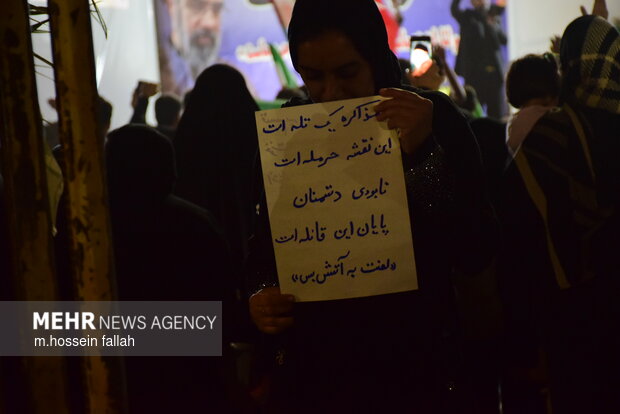 مذاکره یک تله ات
این نقشه حرمله ات
نابودی دشمنان
پایان این قائله ات
«لعنت به آتش بس»
MEHR NEWS AGENCY
m.hossein fallah